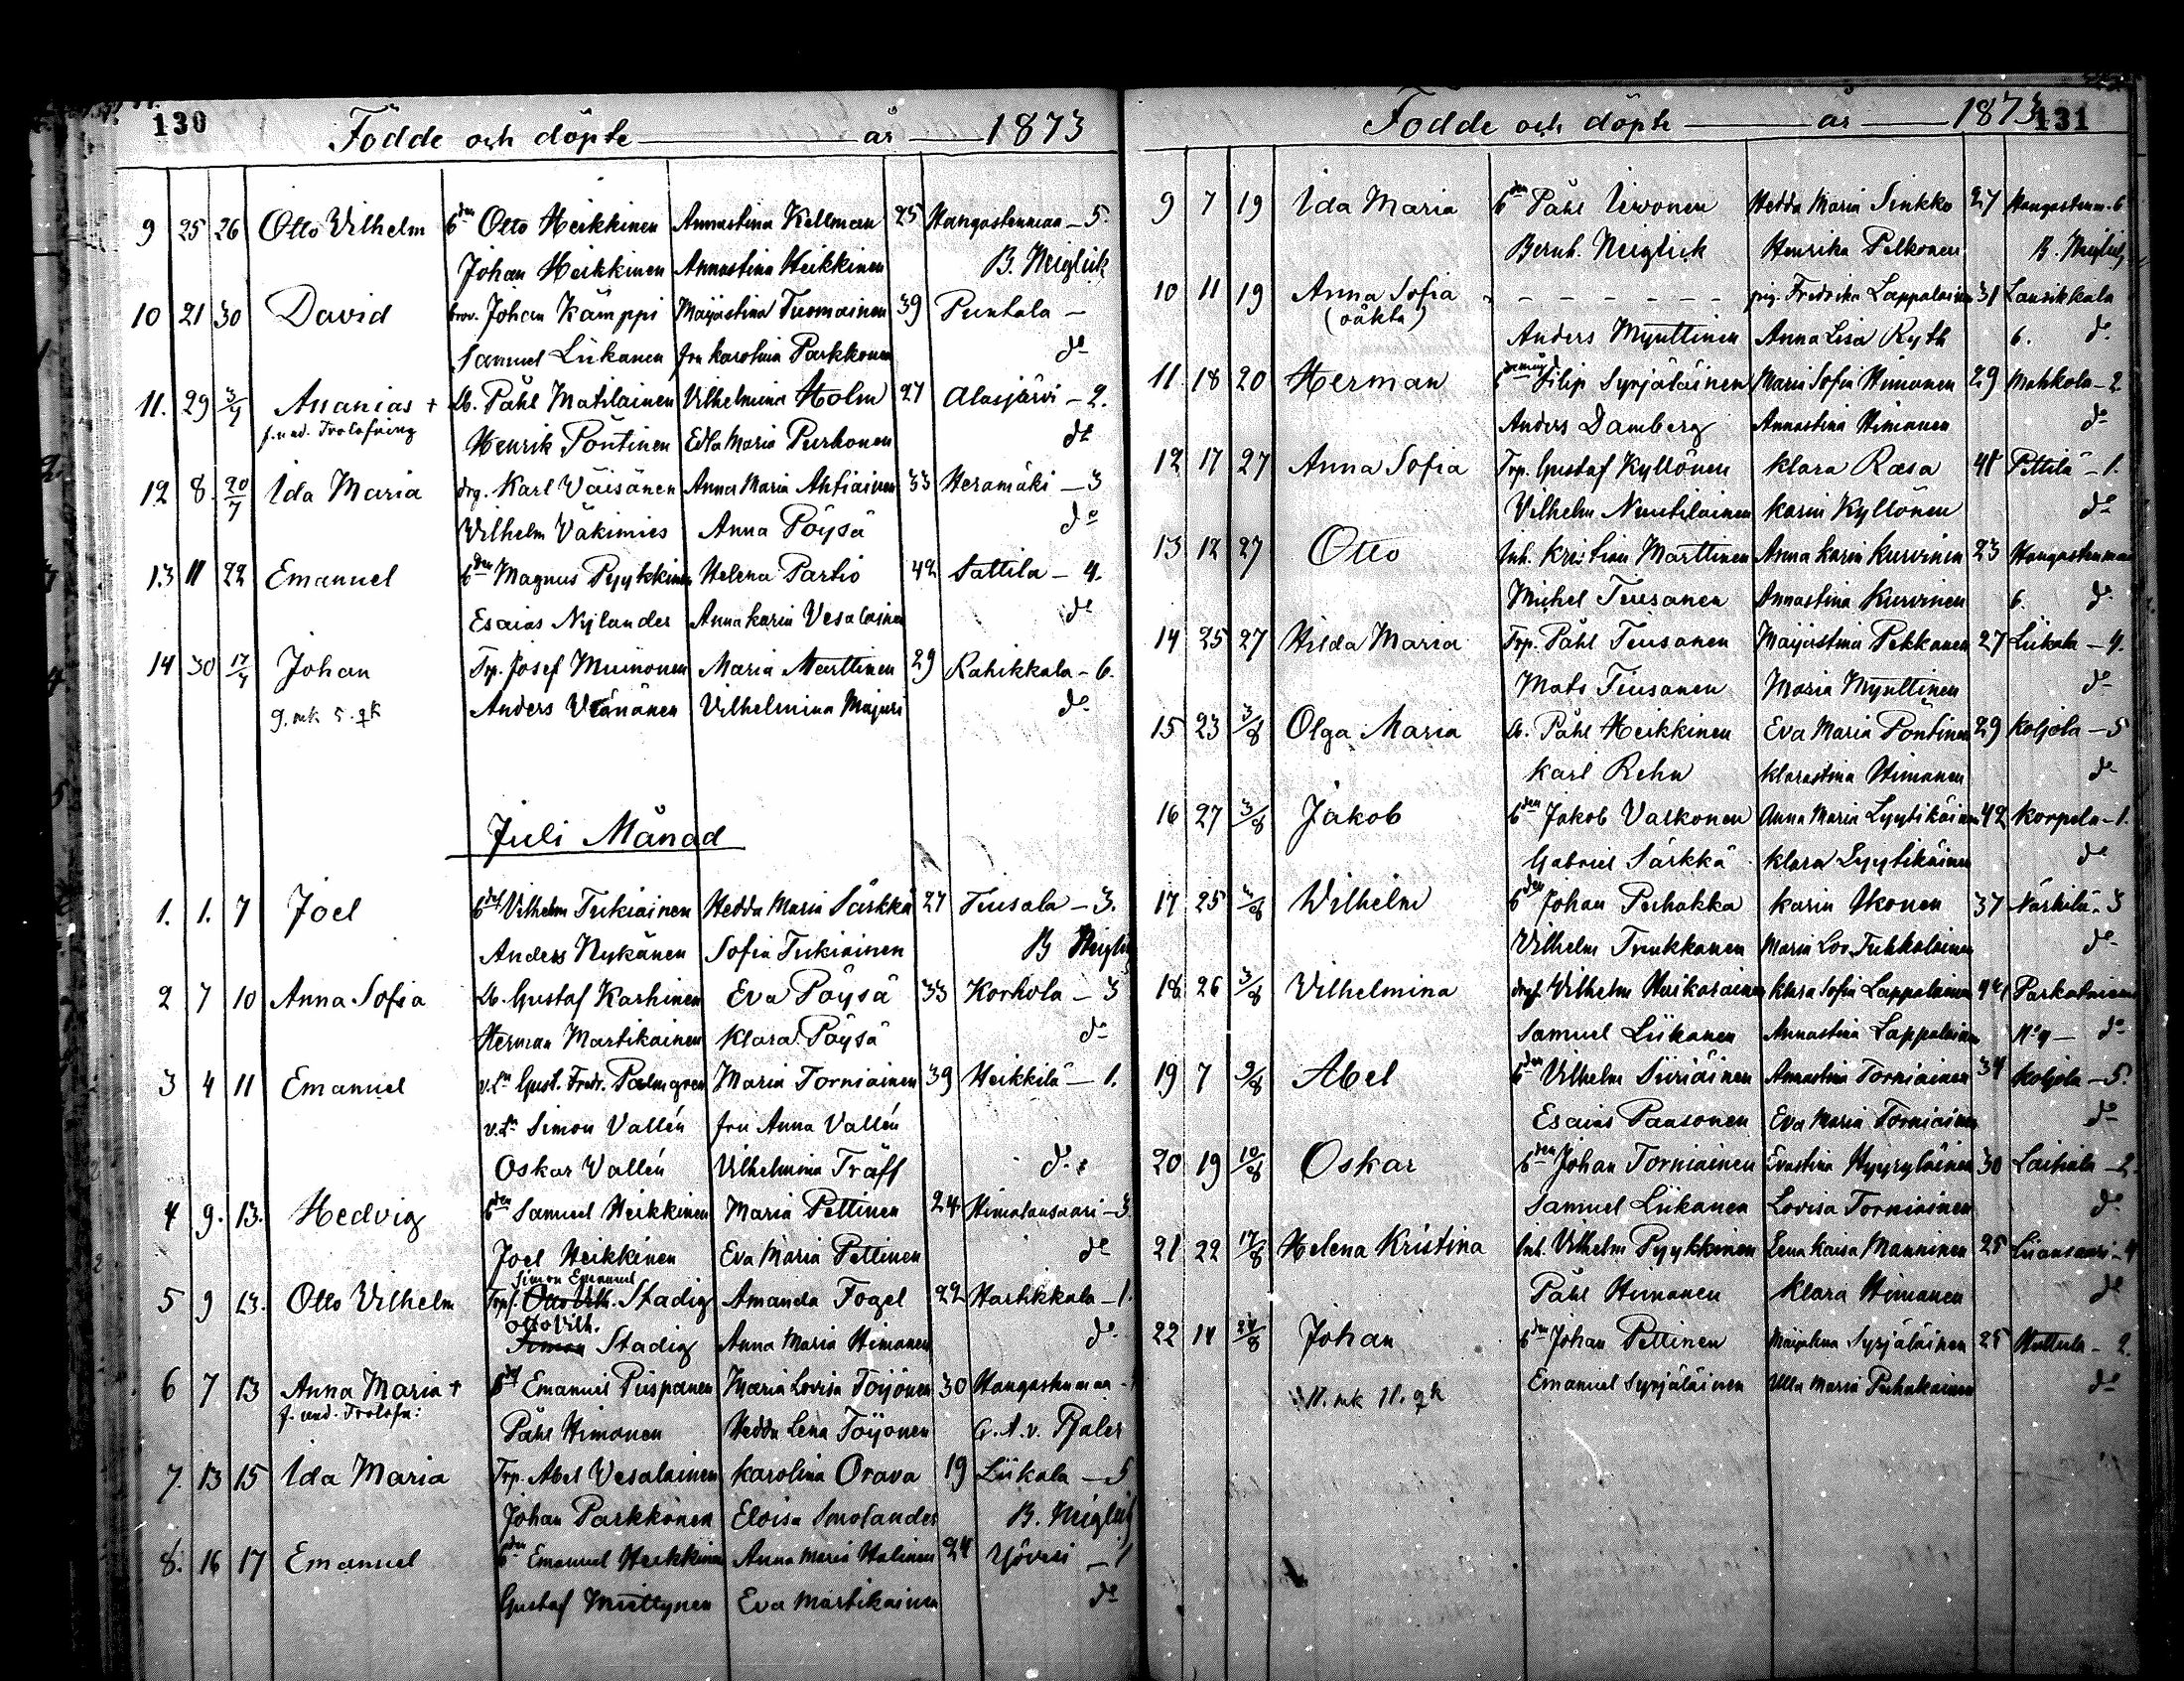 130
Födde och döpte år 1873
9 25 26 Otto Vilhelm bden Otto Heikkinen Annastina Kellman 25 Hangastenmaa - 5.
Johan Heikkinen Annastina Heikkinen B. Neiglick
10 21 30 David Johan Kämppi Maijastina Tuomainen 39 Puntala -
Samuel Liikanen fru Karolina Parkkonen do
11. 29 3/7 Ananias + Lb. Påhl Matilainen Vilhelmina Holm 27 Alasjärvi - 2.
f. und. Trolofning Henrik Pöntinen Edla Maria Purhonen do
12 8. 20/7 Ida Maria drg. Karl Väisänen Anna Maria Ahtiainen 33 Heramäki - 3
Vilhelm Väkimies Anna Pöysä do
13 11 22 Emanuel bden Magnus Pyykkinen Helena Partio 42 Sattila - 4.
Esaias Nylander Anna Karin Vesalainen do
14 30 17/7 Johan Trp. Josef Muinonen Maria Marttinen 29 Rahikkala - 6.
9. mk 5. qk Anders Väänänen Vilhelmina Majuri do
Juli Månad
1. 1. 7 Joel Vilhelm Tukiainen Hedda Maria Särkkä 27 Tiusala - 3.
Anders Nykänen Sofia Tukiainen B Neiglick
2 7 10 Anna Sofia Lb. Gustaf Karhinen Eva Pöysä 33 Korhola - 3
Herman Martikainen Klara Pöysä do
3 4 11 Emanuel Gust. Fredr. Palmgren Maria Torniainen 39 Heikkilä - 1.
Simon Vallén fru Anna Vallén
Oskar Vallén Vilhelmina Träff do
4 9. 13. Hedvig bden Samuel Heikkinen Maria Pettinen 24. Himalansaari - 3
Joel Heikkinen Eva Maria Pettinen do
Simon Emanuel
5 9 13. Otto Vilhelm Trp. Otto Vilh. Stadig Amanda Fogel 22 Harhkkala - 1.
Otto Vilh.
Simon Stadig Anna Maria Himanen do
6 7 13 Anna Maria + Emanuel Piispanen Maria Lovisa Töijönen 30 Hangastenmaa
f. und. Trolofn: Påhl Himanen Hedda Lena Töijönen G. A. v. Pfaler
7. 13 15 Ida Maria Trp. Abel Vesalainen Karolina Orava 19 Liikala - 5
Johan Parkkonen Eloisa Smolander B. Neiglick
8. 16 17 Emanuel bden Emanuel Heikkinen Anna Maria Halinen 24 Yöveri - 1
Gustaf Miettynen Eva Martikainen do
Födde och döpte år 1873
131
9 7 19 Ida Maria bden Påhl Virvonen Hedda Maria Sinkko 27 Hangastenm. 6
Bernh. Neiglick Henrika Pelkonen B. Neiglick
10 11 19 Anna Sofia - - - - - - pig. Fredrika Lappalainen 31 Lansikkala
(oäkta) Anders Mynttinen Anna Lisa Ryth 6. do
11 18 20 Herman Filip Syrjäläinen Maria Sofia Himanen 29 Mahkola - 2
Anders Damberg Annastina Himanen do
12 17 27 Anna Sofia Trp. Gustaf Kyllönen Klara Rasa 41 Pettilä - 1.
Vilhelm Nuutilainen Karin Kyllönen do
13 12 27 Otto Inh. Kristian Marttinen Anna Karin Kurvinen 23 Hangastenmaa
Michel Tiusanen Annastina Kurvinen 6. do
14 25 27 Hilda Maria Trp. Påhl Tiusanen Maijastina Pekkanen 27 Liikala - 4.
Mats Tiusanen Maria Mynttinen do
15 23 3/8 Olga Maria Lb. Påhl Heikkinen Eva Maria Pöntinen 29 Koljola - 5
Karl Rehn Klarastina Himanen do
16 27 3/8 Jakob bden Jakob Vaskonen Anna Maria Lyytikäinen 42 Korpela - 1.
Gabriel Särkkä Klara Lyytikäinen do
17 25 3/8 Wilhelm bden Johan Puhakka Karin Ikonen 37 Närhilä - 3
Vilhelm Trukkanen Maria Lov. Tuhkalainen do
18 26 3/8 Vilhelmina Vilhelm Herikarainen Klara Sofia Lappalainen Parkatniemi
Samuel Liikanen Annastina Lappalainen do
19 7 9/8 Abel bden Vilhelm Siiriäinen Annastina Torniainen 34 Koljola - 5.
Esaias Paasonen Eva Maria Torniainen do
20 19 10/8 Oskar bden Johan Torniainen Evastina Hyyryläinen 30 Laitiala - 2.
Samuel Liikanen Lovisa Torniainen do
21 22 17/8 Helena Kristina Inh. Vilhelm Pyykkinen Lena Kaisa Manninen 25 Liiansaari - 4
Påhl Himanen Klara Himanen do
22 14 24/8 Johan bden Johan Pettinen Maijalena Syrjäläinen 25 Huttula - 2.
11. mk 11. qk Emanuel Syrjäläinen Ulla Maria Puhakainen do